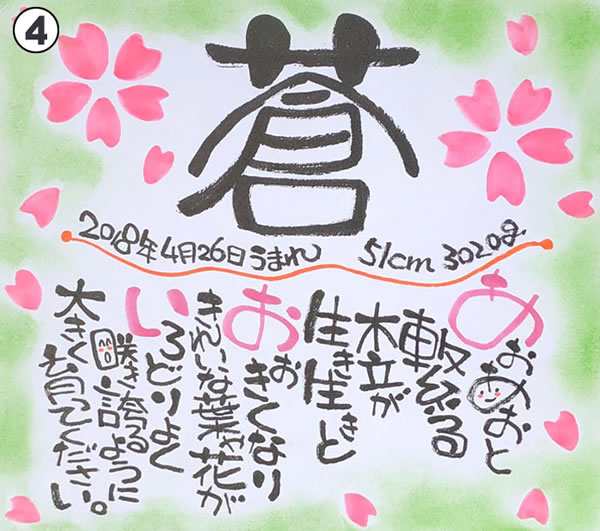 ④
蒼
2018年4月26日うまれ 51cm 3020g
あおあおと
繋る
木立が
生き生きと
おおきくなり
きれいな葉や花が
いろどりよく
咲き誇るように
大きく育ってください。